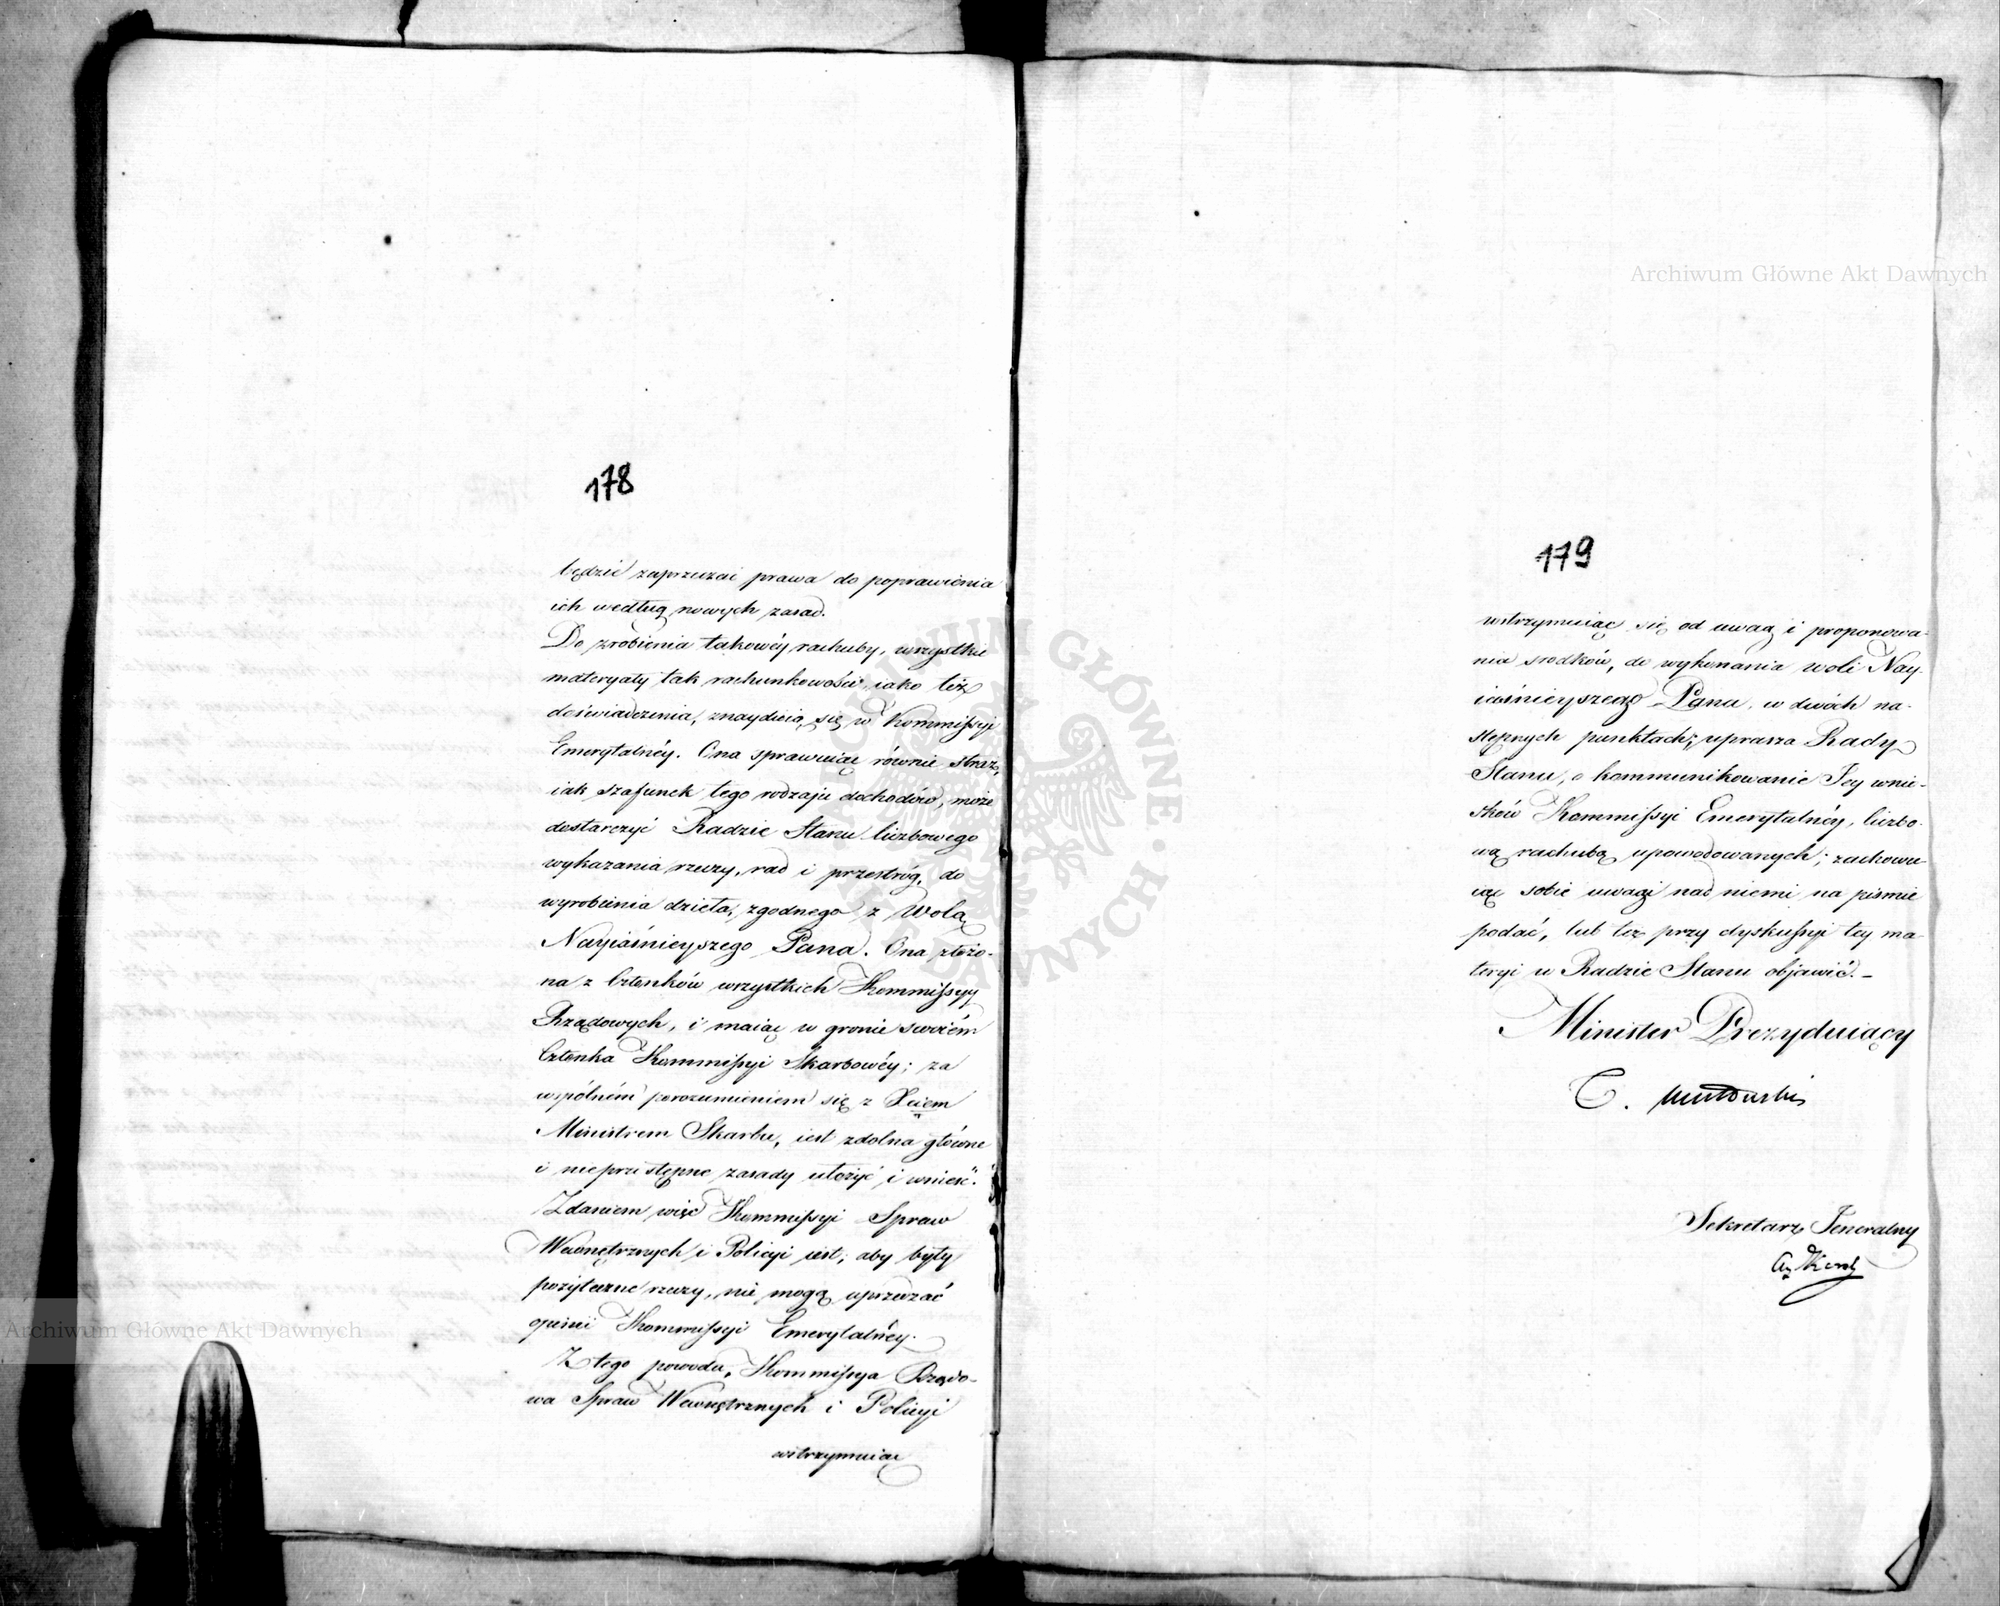 178
będzie zaprzeczać prawa do poprawienia
ich według nowych zasad.
Do zrobienia takowéy rachuby, wszystkie
materyały tak rachunkowości, iako też
doświadczenia, znayduią się w Kommissyi
Emerytalnéy. Ona sprawuiąc równie straż,
iak szafunek tego rodzaju dochodów, może
dostarczyć Radzie Stanu liczbowego
wykazania rzeczy, rad i przestróg, do
wyrobienia dzieła, zgodnego z Wolą
Nayiaśnieyszego Pana. Ona złożo-
na z Członków wszystkich Kommissyy
Rządowych, i maiąc w gronie swoiém
Członka Kommissyi Skarbowéy; za
wspólném porozumieniem się z Xciem
Ministrem Skarbu, iest zdolna główne
i nieprzestępne zasady ułożyć i wnieść.
Zdaniem więc Kommissyi Spraw
Wewnętrznych i Policyi iest, aby były
pożyteczne rzeczy, nie mogą uprzedzać
opinii Kommissyi Emerytalnéy.
Z tego powodu, Kommissya Rządo-
wa Spraw Wewnętrznych i Policyi
wstrzymuiąc
179
wstrzymuiąc się od uwag i proponowa-
nia srodków, do wykonania woli Nay-
iaśnieyszego Pana, w dwóch na-
stępnych punktach; uprasza Rady
Stanu, o kommunikowanie Jey wnio-
sków Kommissyi Emerytalnéy, liczbo-
wą rachubą upowodowanych; zachowu-
iąc sobie uwagi nad niemi na pismie
podać, lub też przy dyskussyi tey ma-
teryi w Radzie Stanu objawić. -
Minister Prezyduiący
T. Mostowski
Sekretarz Jeneralny
Archiwum Główne Akt Dawnych
Archiwum Główne Akt Dawnych
ARCHIWUM GŁÓWNE AKT DAWNYCH